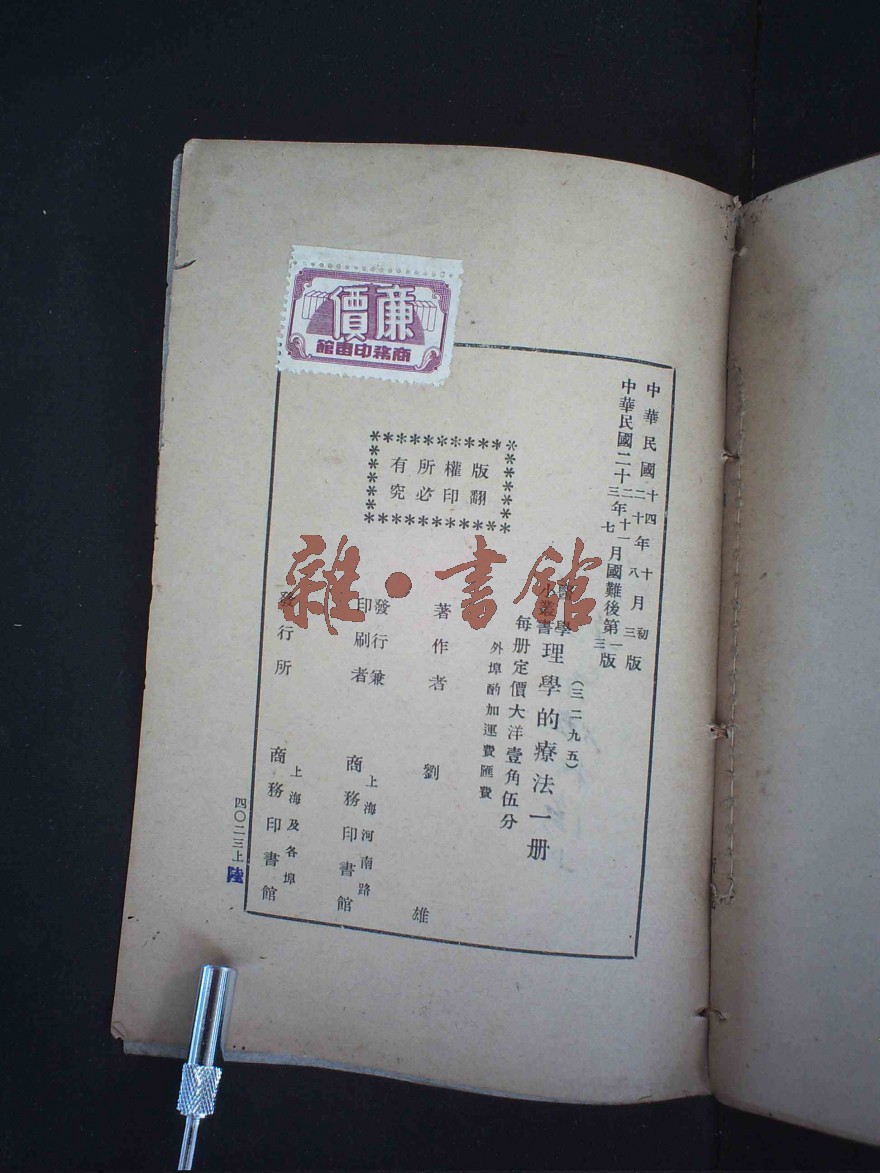 廉價
商務印書館
中華民國十四二十年十八月初三版
中華民國二十二三年十一七月國難後第一三版
(三二九五)
醫學小叢書 理學的療法一册
每册定價大洋壹角伍分
外埠酌加運費匯費
版權所有
翻印必究
著作者 劉雄
發行兼印刷者 上海河南路 商務印書館
發行所 上海及各埠 商務印書館
四〇二三上
陸
雜·書館